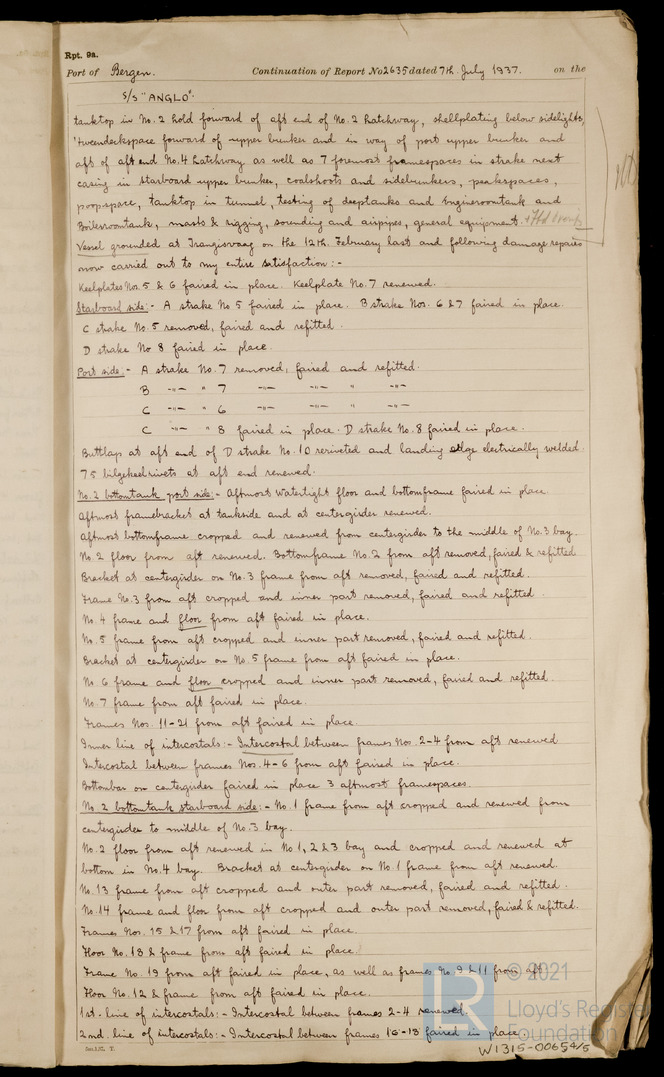 Rpt. 9a.
Port of Bergen. Continuation of Report No 2635 dated 7th July 1937. on the
S/S "ANGLO".
tanktop in No. 2 hold forward of aft end of No. 2 hatchway, shellplating below sidelights,
'tweendeckspace forward of upper bunker and in way of port upper bunker and
aft of aft end No. 4 hatchway as well as 7 foremost framespaces in strake next
casing in starboard upper bunker, coalshoots and sidebunkers, peakspaces,
poopspace, tanktop in tunnel, testing of deeptanks and Engineroomtank and
Boilerroomtank, masts & rigging, sounding and airpipes, general equipment.
Vessel grounded at Trangisvaag on the 12th. February last and following damage repairs
now carried out to my entire satisfaction :-
Keelplates Nos. 5 & 6 faired in place. Keelplate No. 7 renewed.
Starboard side :- A strake No 5 faired in place. B strake Nos. 6 & 7 faired in place.
C strake No. 5 removed, faired and refitted.
D strake No 8 faired in place.
Port side :- A strake No. 7 removed, faired and refitted.
B -"- " 7 -"- -"- " -"-
C -"- " 6 -"- -"- " -"-
C -"- " 8 faired in place. D strake No. 8 faired in place.
Buttlaps at aft end of D strake No. 10 reriveted and landing edge electrically welded.
75 bilgekeelrivets at aft end renewed.
No. 2 bottomtank port side :- Aftmost Watertight floor and bottomframe faired in place.
Aftmost framebracket at tankside and at centergirder renewed.
Aftmost bottomframe cropped and renewed from centergirder to the middle of No. 3 bay.
No. 2 floor from aft renewed. Bottomframe No. 2 from aft removed, faired & refitted
Bracket at centergirder on No. 3 frame from aft removed, faired and refitted.
Frame No. 3 from aft cropped and inner part removed, faired and refitted.
No. 4 frame and floor from aft faired in place.
No. 5 frame from aft cropped and inner part removed, faired and refitted.
Bracket at centergirder on No. 5 frame from aft faired in place.
No. 6 frame and floor cropped and inner part removed, faired and refitted.
No. 7 frame from aft faired in place.
Frames Nos. 11-21 from aft faired in place.
Inner line of intercostals :- Intercostal between frames Nos. 2-4 from aft renewed
Intercostal between frames Nos. 4-6 from aft faired in place.
Bottombar on centergirder faired in place 3 aftmost framespaces.
No. 2 bottomtank starboard side :- No. 1 frame from aft cropped and renewed from
centergirder to middle of No. 3 bay.
No. 2 floor from aft renewed in No 1, 2 & 3 bay and cropped and renewed at
bottom in No. 4 bay. Bracket at centergirder on No. 1 frame from aft renewed.
No. 13 frame from aft cropped and outer part removed, faired and refitted.
No. 14 frame and floor from aft cropped and outer part removed, faired & refitted.
Frames Nos. 15 & 17 from aft faired in place.
Floor No. 18 & frame from aft faired in place.
Frame No. 19 from aft faired in place, as well as frames No 9 & 11 from aft
Floor No. 12 & frame from aft faired in place.
1st. line of intercostals :- Intercostal between frames 2-4 renewed.
2nd. line of intercostals :- Intercostal between frames 16-18 faired in place
© 2021
Lloyd's Register
Foundation
LR
W1315-0065 4/5